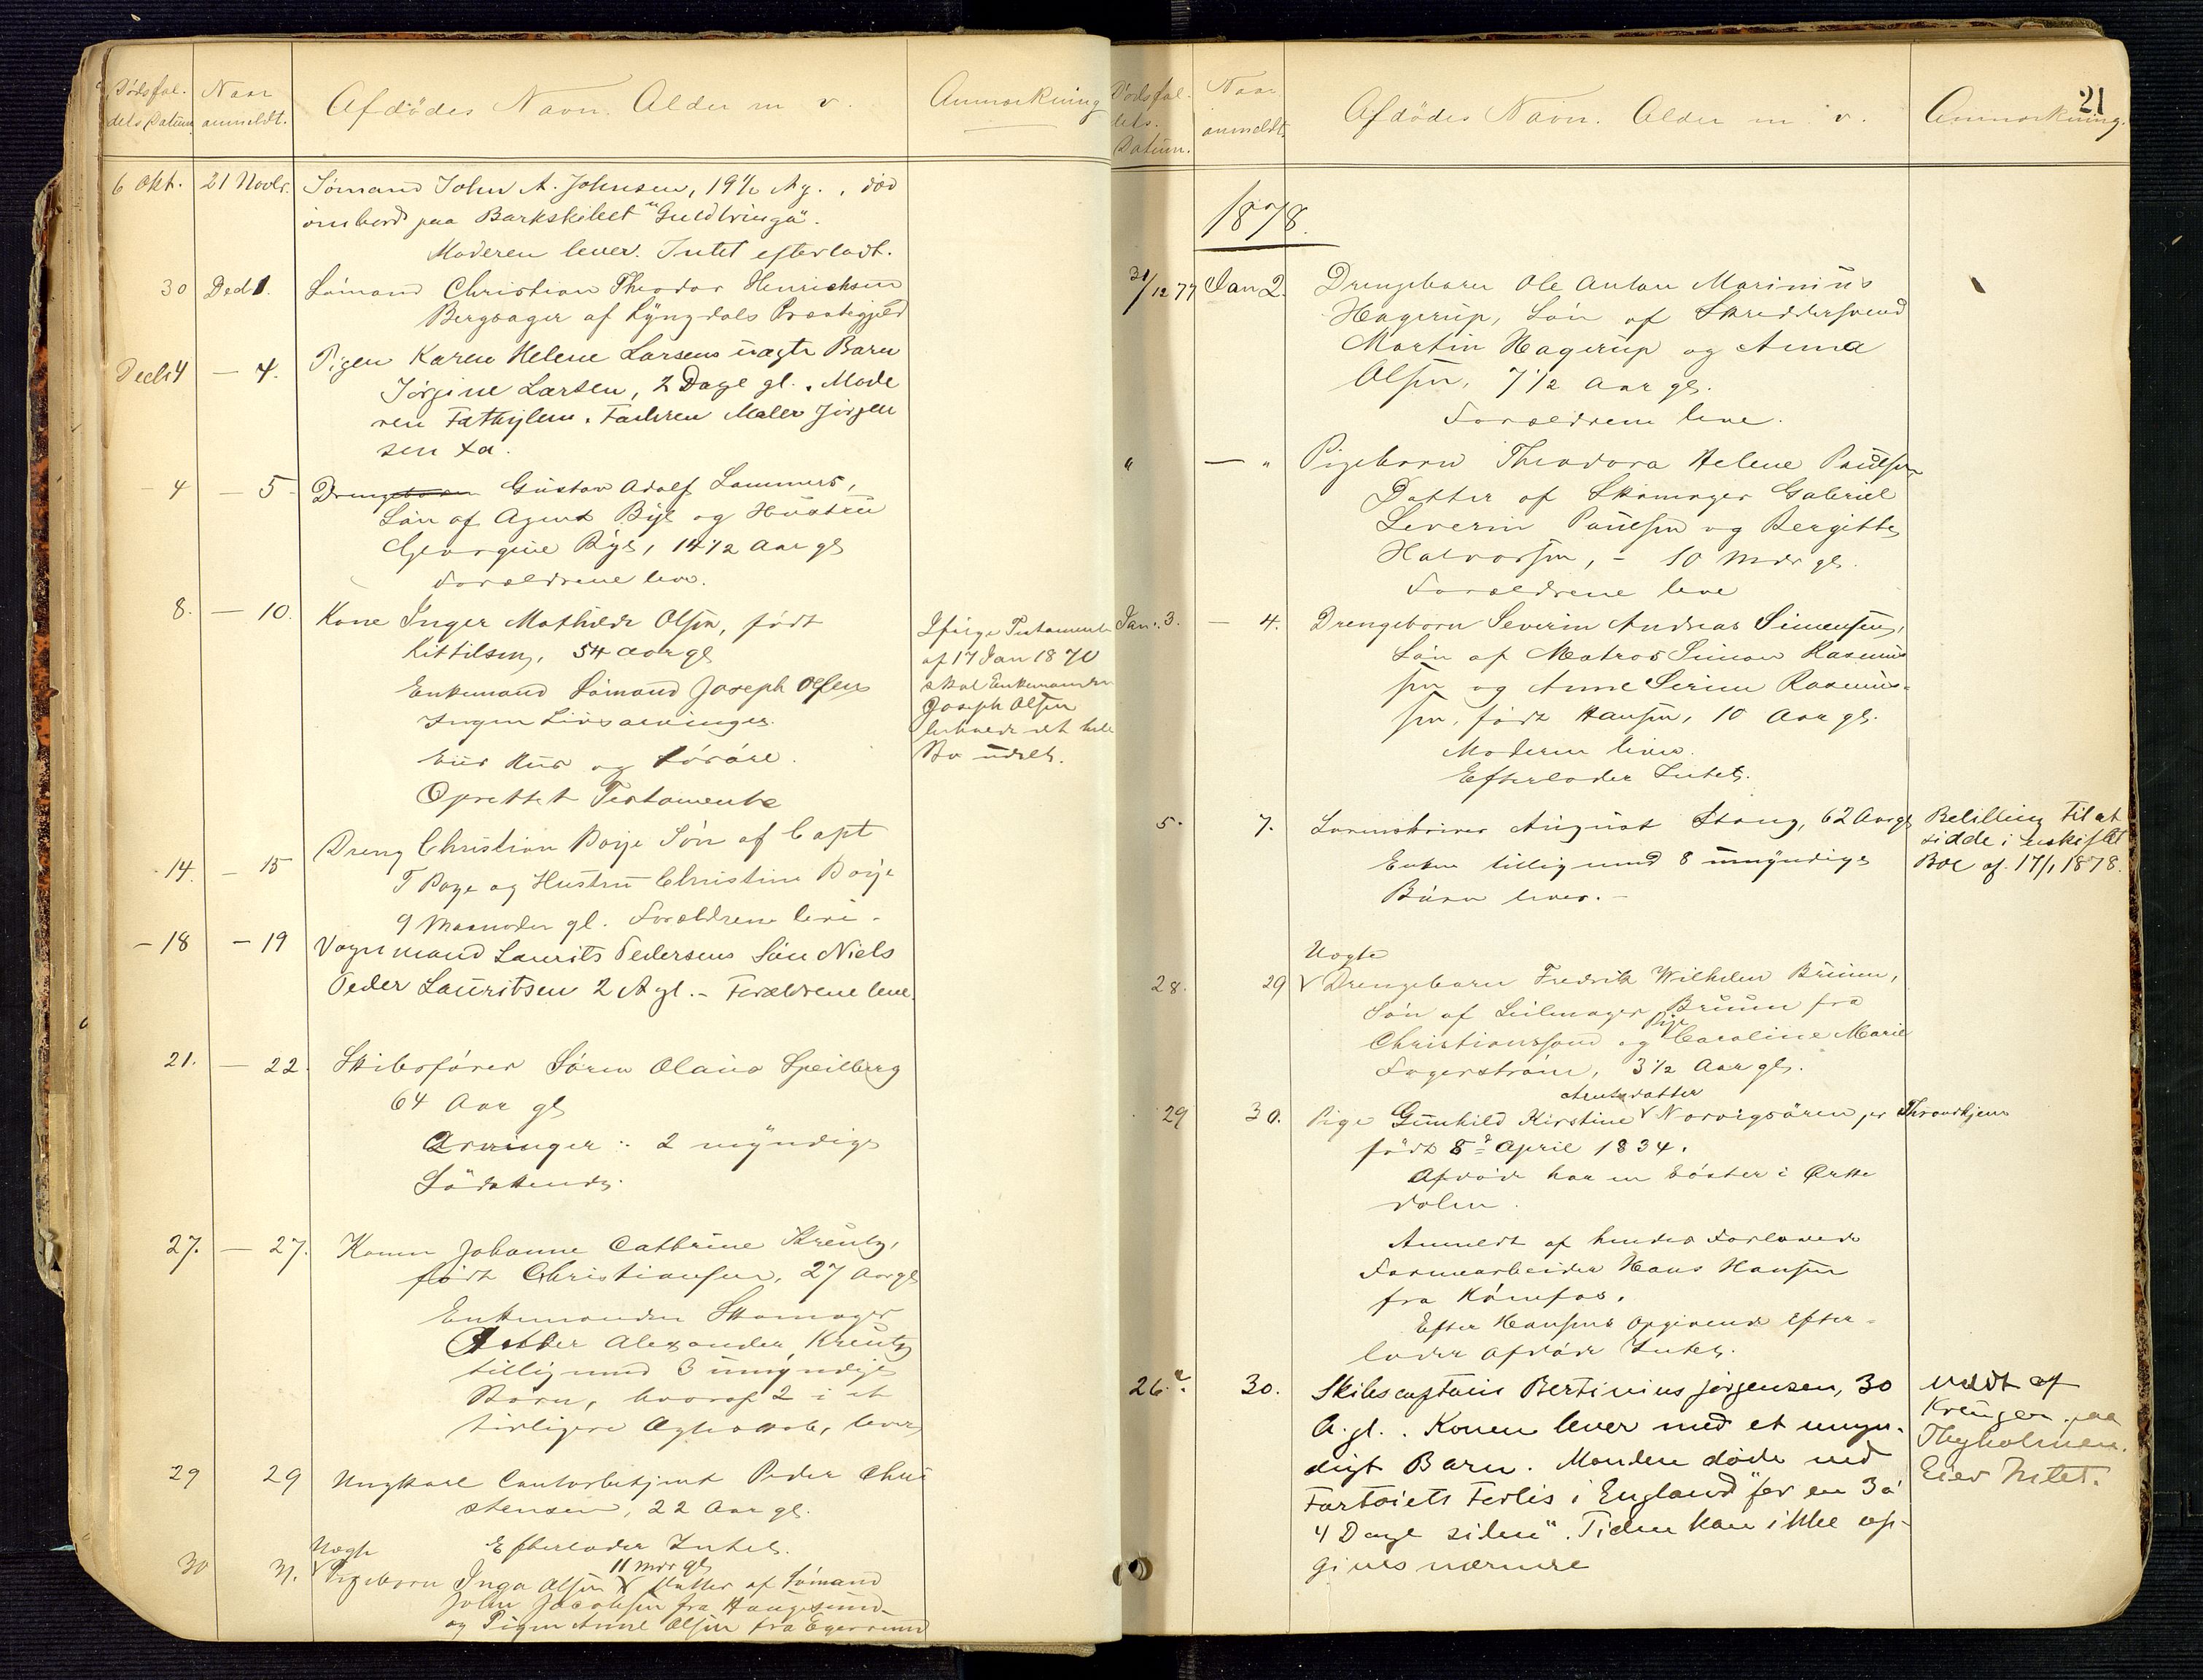 Dødsfal-
dels Datum
Naar
anmeldt.
Afdödes Navn. Alder m v.
Anmærkning
6 Okt. 21 Novbr. Sömand John A. Johnsen, 19½ Ag., død
ombord paa Barkskibet "Guldbringa".
Moderen lever. Intet efterladt.
30 Decb 1. Sömand Christian Theodor Henrichsen
Bergsager af Lyngdals Præstegjeld
Decb 4 — 4. Pigen Karen Helene Larsens uægte Barn
Jørgine Larsen, 2 Dage gl. Mode
ren Fattiglem. Faderen Maler Jörgen
sen
4 — 5 Drengebarn Gustav Adolf Lammers,
Søn af Agent Bÿe og Hustru
Georgine Bÿe, 14½ Aar gl
Forældrene leve.
8. — 10. Kone Inger Mathilde Olsen, født
Kittilsen, 54 aar gl
Enkemand Sömand Joseph Olsen
Ingen Livsarvinger.
Eier Hus og Lösöre.
Oprettet Testamente
Ifølge Testamente
af 17 Jan 1870
skal Enkemanden
Joseph Olsen
beholde det hele
Bo udelt.
14. — 15 Dreng Christian Boije Sön af Capt
T Boye og Hustru Christine Boije
9 Maaneder gl. Forældrene leve.
— 18 — 19 Vognmand Laurits Pedersens Sön Niels
Peder Lauritsen 2 A gl. — Forældrene leve.
21. — 22. Skibsfører Sören Olaus Speilberg
64 Aar gl
Arvinger: 2 myndige
Södskende.
27. — 27. Konen Johanne Cathrine Kreutz,
født Christiansen, 27 Aar gl
Enkemanden Skomager
Alexander Kreutz
tillig med 3 umyndige
Börn, hvoraf 2 i et
tidligere Ægteskab, lever
29 29 Ungkarl Contorbetjent Peder Chri
stensen, 22 Aar gl.
Efterlader Intet.
30 31. Uægte
Pigebarn Inga Olsen 11 mdr gl Datter af Sömand
John Jacobsen fra Haugesund
og Pigen Anne Olsen fra Egersund
21
Dödsfal-
dels.
Datum.
Naar
anmeldt.
Afdödes Navn. Alder m. v.
Anmærkning.
1878.
31/12 77 Jan 2. Drengebarn Ole Anton Marinius
Hagerup, Sön af Skreddersvend
Martin Hagerup og Anna
Olsen, 7½ Aar gl.
Forældrene leve.
" — " Pigebarn Theodora Helene Paulsen
Datter af Skomager Gabriel
Severin Paulsen og Bergitte
Halvorsen, — 10 Mdr gl.
Forældrene leve
Jan. 3. — 4. Drengebarn Severin Andreas Simensen,
Sön af Matros Simon Rasmus
sen og Anne Serine Rasmus-
sen, født Hansen, 10 Aar gl.
Moderen lever.
Efterlader Intet.
5. 7. Sorenskriver August Stang, 62 Aar gl
Enken tillig med 8 umyndige
Börn lever. —
Bevilling til at
sidde i uskiftet
Boe af 17/1 1878.
28. 29 Uægte
Drengebarn Fredrik Wilhelm Bruun,
Sön af Seilmager Bruun fra
Christianssand og Pige Caroline Marie
Fagerström, 3½ Aar gl.
29 30. Pige Gunhild Kirstine Arntsdatter Norvigsören, pr Throndhjem
født 8de April 1834.
Afdöde har en Söster i Orke
dalen.
Anmeldt af hendes Forlovede
Farmearbeider Hans Hansen
fra Hönefos.
Efter Hansens Opgivende efter-
lader Afdöde Intet.
26. 30. Skibscaptain Bertinius Jörgensen, 30
A. gl. Konen lever med et umyn-
digt Barn. Manden döde ved
Fartöiets Forlis i England "for en 3 á
4 Dage siden". Tiden kan ikke op-
gives nærmere
meldt af
Kreuger paa
Thyholmen.
Eier Intet.